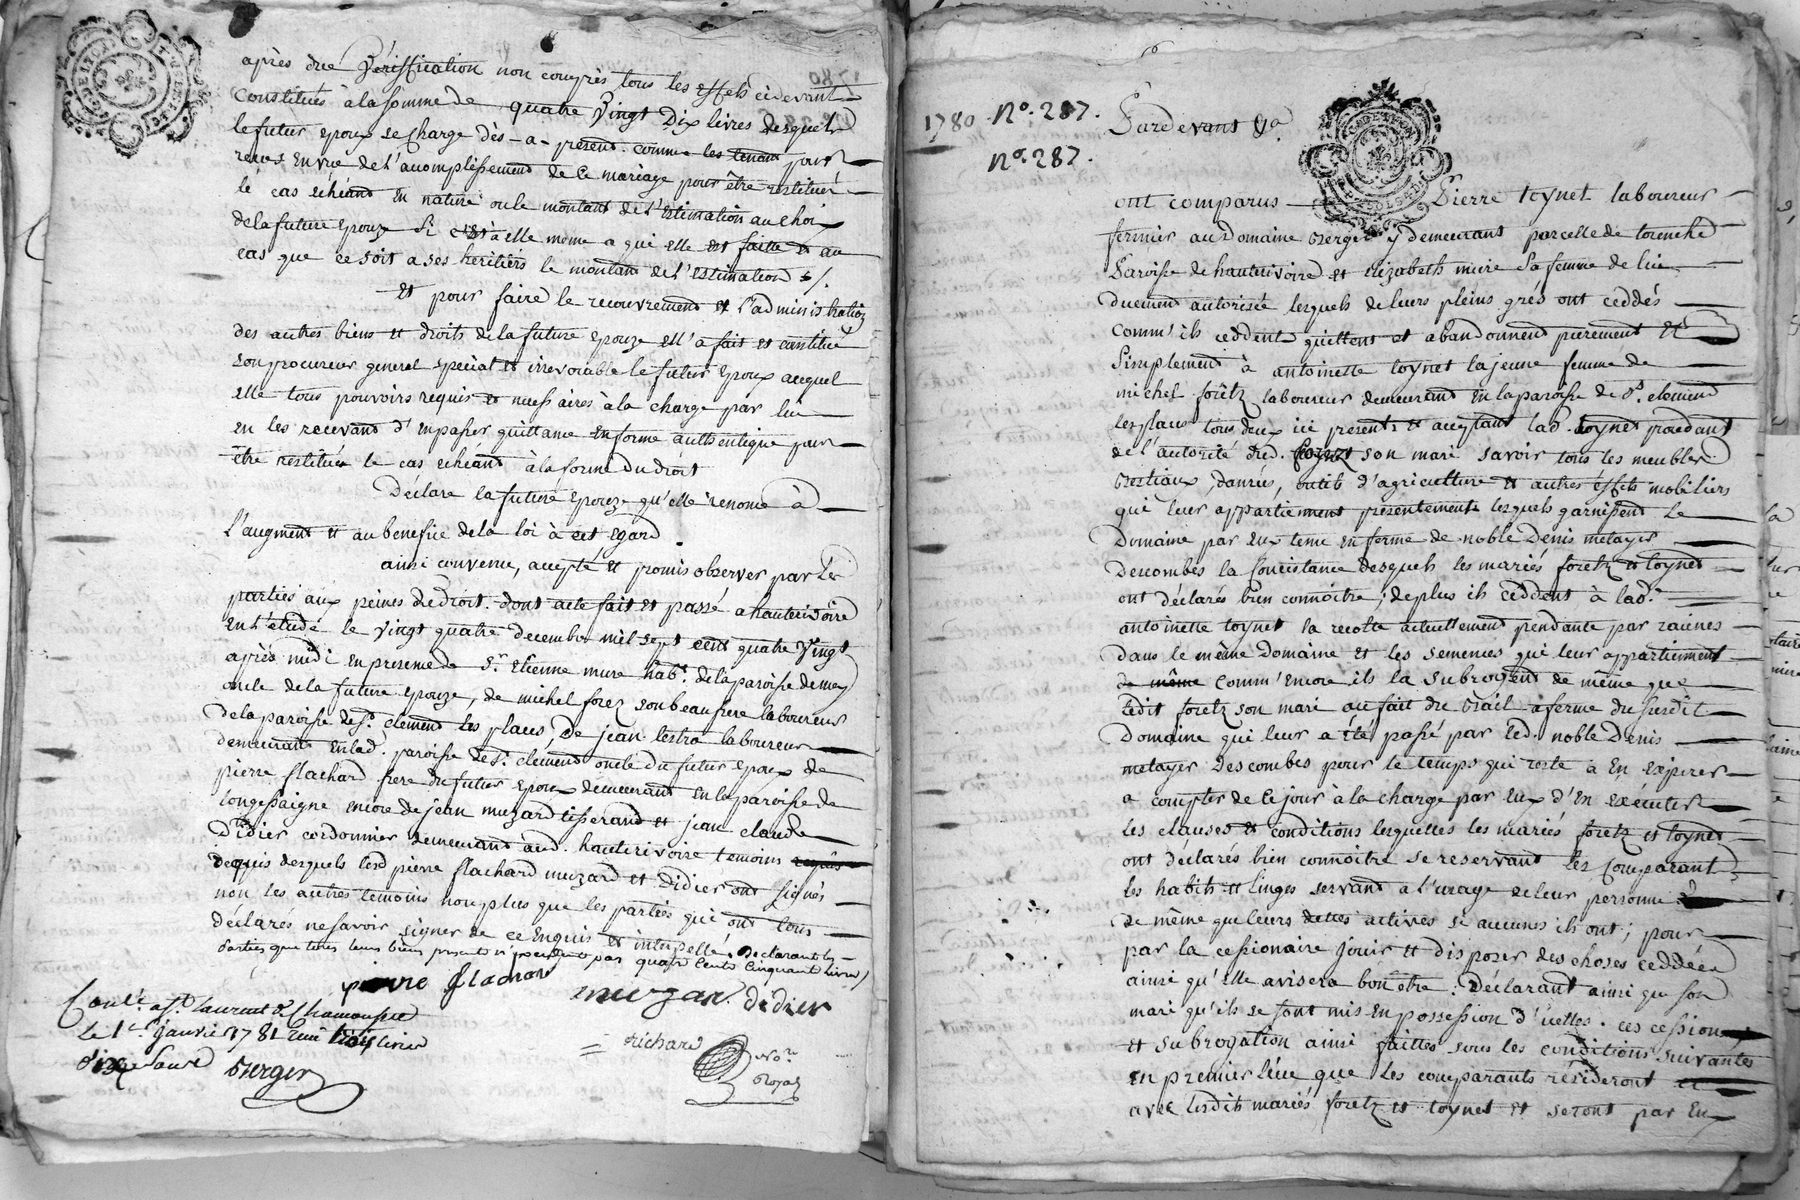 après due Vérissfication non compris tous les effets cidevant
Constitués à la somme de quatre Vingt Dix livres desquels
le futur epoux se charge dès-a-present comme les tenant pour
recus en vue de l'acomplissement de Ce mariage pour être restitués
le cas échéant en nature ou le montant de l'estimation au choix
de la future epouze si c'est à elle meme a qui elle est faitte et au
cas que ce soit a ses heritiers le montant de l'estimation ./.
et pour faire le recouvrement et l'administration
des autres biens et droits de la future epouze ell'a fait et constitué
son procureur general special et irrevocable le futur epoux auquel
elle tous pouvoirs requis et nécessaires à la charge par lui
en les recevant d'en passer quittance en forme authentique pour
être restitués le cas echéant à la forme du droit
Déclare la future epouze qu'elle renonce à
L'augment et au benefice de la loi à cet egard
ainsi convenu, accepté et promis observer par les
parties aux peines de droit. dont acte fait et passé a hauterivoire
en l'étude le Vingt quatre decembre mil sept cent quatre Vingt
après midi en presence de Sr. Etienne mure habt. de la paroisse de mey
oncle de la future epouze, de michel forez son beaufrere laboureur
de la paroisse de St. clement les places, De jean lestra laboureur
demeurant en lad. paroisse de St. clement oncle du futur epoux de
pierre flachard frere du futur epoux demeurant en la paroisse de
longessaigne encore de jean muzard tisserand et jean claude
Didier cordonnier demeurant aud. hauterivoire temoins requis
dequis desquels lesd pierre flachard muzard et didier ont signés
non les autres temoins non plus que les parties qui ont tous
déclarés ne savoir signer de ce Enquis et interpellé. Declarant les
parties que tous leurs biens presents n'excedent pas quatre Cents Cinquante livres
pierre flachard
muzard didier
Conlé. a St. laurent de Chamousset
le 1er. janvier 1781 reçu trois livres
dixe sols Berger
richard
Nore.
Royal
1780 No. 287.
No. 287.
Pardevant &a
ont comparus Pierre toynet laboureur
fermier au Domaine Berger y demeurant parcelle de tournché
Paroisse de hauterivoire et elizabeth mure sa femme de lui
duement autorisée lesquels de leurs pleins grés ont ceddés
comm'ils ceddent quittent et abandonnent purement et
simplement à antoinette toynet la jeune femme de
michel forêtz laboureur demeurant en la paroisse de St. clement
les places tous deux ici presents et acceptant lad. toynet procedant
de l'autorité dud. foretz son mari savoir tous les meubles
bestiaux, danrés, outils d'agriculture et autres effets mobiliers
qui leur appartiennent présentement lesquels garnissent le
Domaine par eux tenu en ferme de noble Denis metayer
Descombes la consistance desquels les mariés foretz et toynet
ont déclarés bien connoitre; de plus ils ceddent à lad.
antoinette toynet la recolte actuellement pendante par raçines
dans le même Domaine et les semences qui leur appartiennent
de même comm'encore ils la subrogent de même que
ledit foretz son mari au fait du Bail-aferme du susdit
Domaine qui leur a été passé par led. noble Denis
metayer Descombes pour le temps qui reste à en expirer
a compter de ce jour à la charge par eux d'en exécuter
les clauses et conditions lesquelles les mariés foretz et toynet
ont déclarés bien connoitre se reservant les Comparant
les habits et linges servant a l'usage de leur personne
de même que leurs dettes actives si aucunes ils ont; pour
par la cessionaire jouir et disposer des choses ceddées
ainsi qu'elle avisera bon être: Déclarant ainsi que son
mari qu'ils se sont mis en possession d'icelles. ces cessions
et subrogation ainsi faittes sous les conditions suivantes
en premier lieu que les comparants résideront et
avec lesdits mariés foretz et toynet et seront par eux